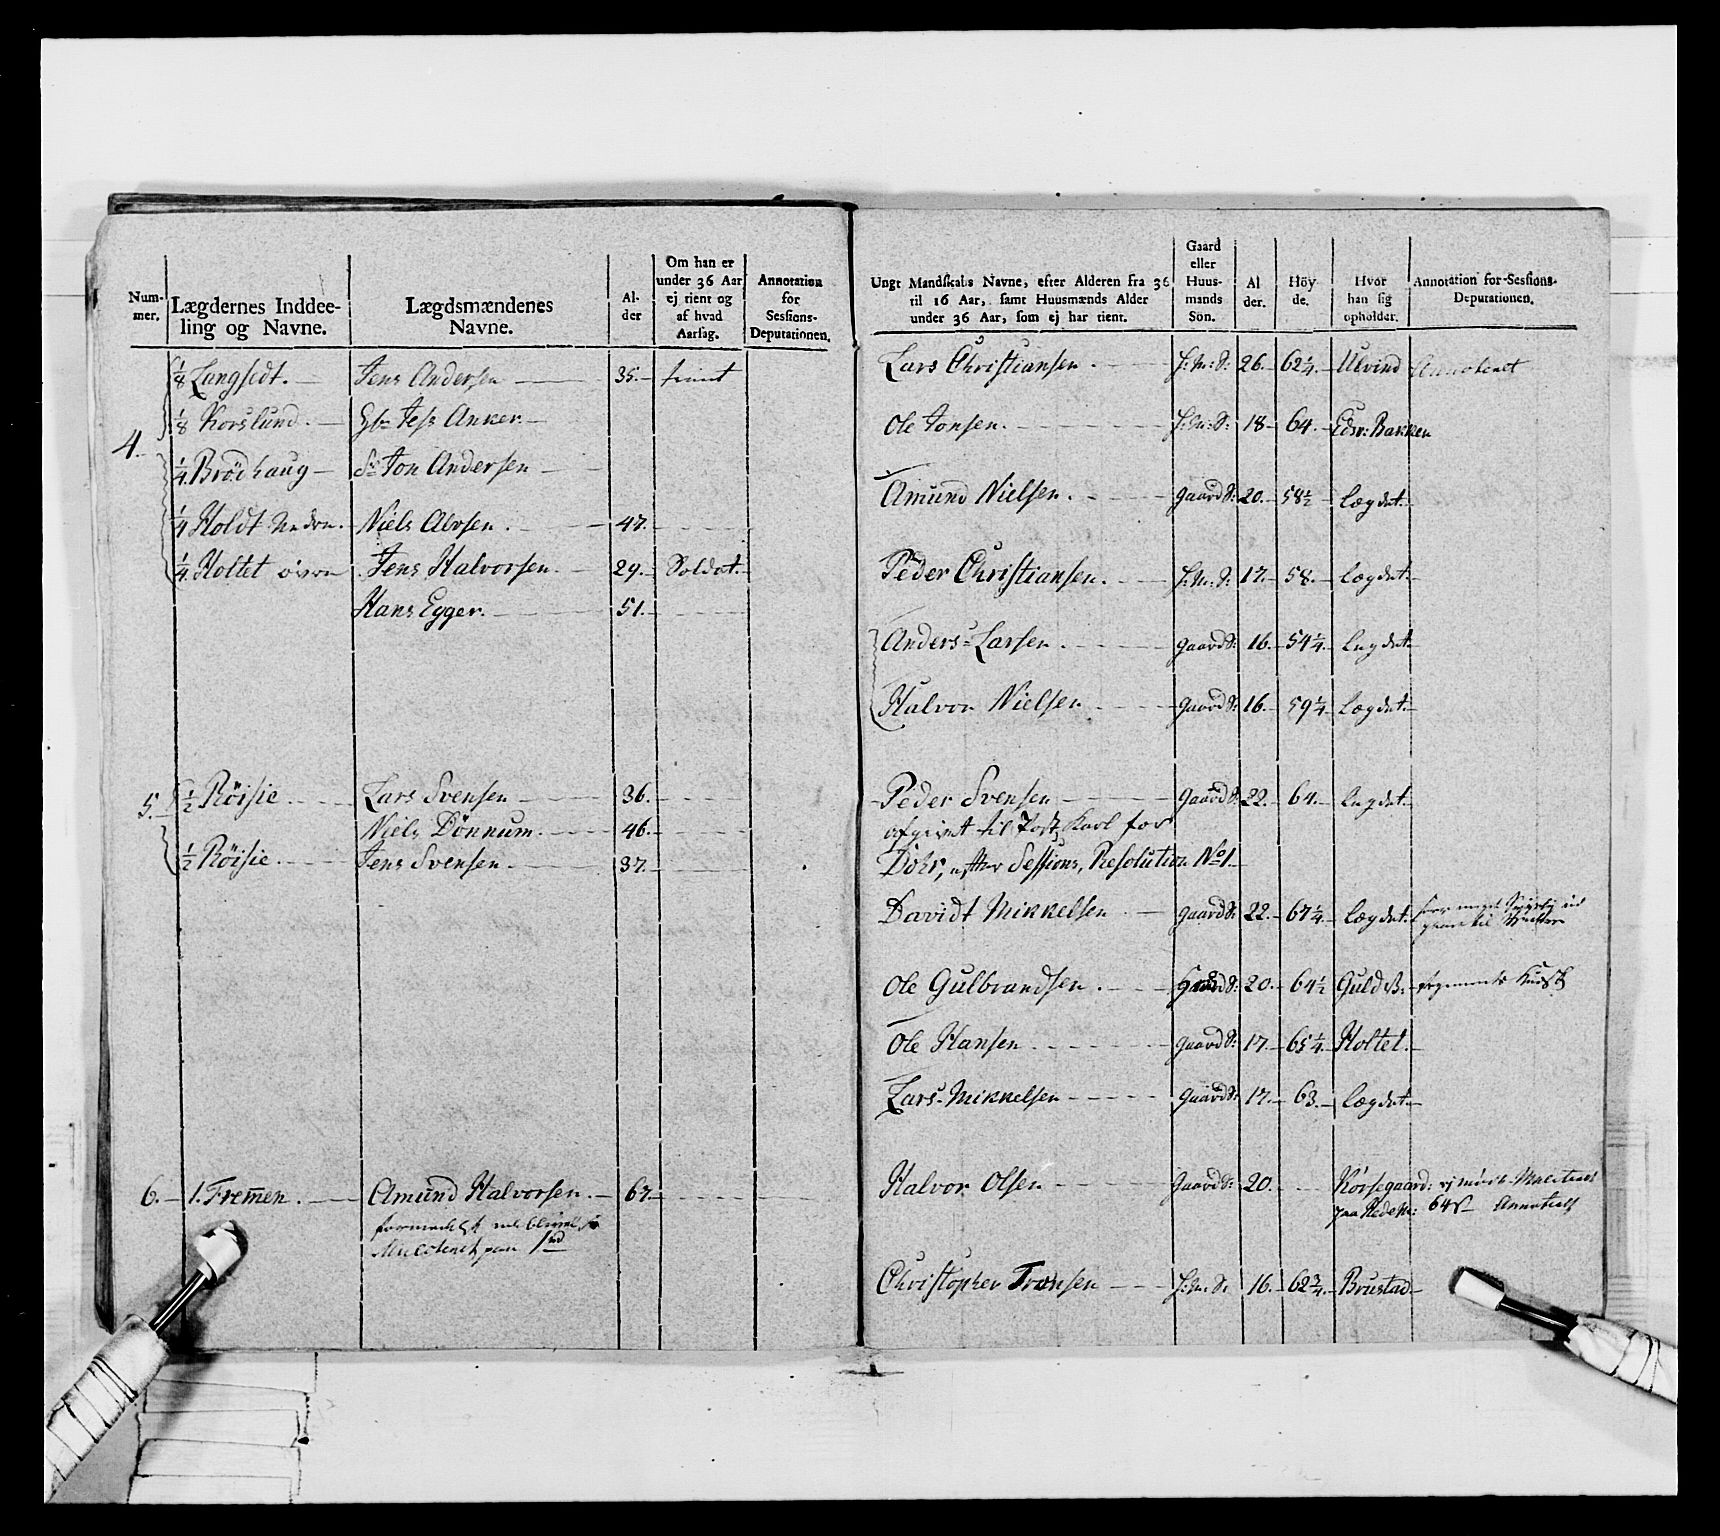 Num-
mer.
Lægdernes Inddee-
ling og Navne.
Lægdsmændenes
Navne.
Al-
der
Om han er
under 36 Aar
ej tient og
af hvad
Aarsag.
Annotation
for
Sessions-
Deputationen.
4. 1/8 Langsedt. Jens Andersen 35.
1/8 Korslund. Jess Anker.
1/4 Brödhaug Jon Andersen
1/4 Holdt Nedre. Niels Alvsen. 47.
1/4 Holtet øvre Jens Halvorsen. 29. Soldat.
Hans Egger. 51.
5. 1/2 Röisie Lars Svensen 36.
Niels Dönnum. 46.
1/2 Röisie Jens Svensen. 37.
6. 1. Fremen. Amund Halvorsen. 67.
Ungt Mandskabs Navne, efter Alderen fra 36
til 16 Aar, samt Huusmænds Alder
under 36 Aar, som ej har tient.
Gaard
eller
Huus-
mands
Sön.
Al
der.
Höy-
de.
Hvor
han sig
opholder.
Annotation for Sessions-
Deputationen.
Lars Christiansen. H: M: S: 26. 62 1/4. Ulvind
Ole Jonsen. H: M: S: 18 64. Edsv: Bakken
Amund Nielsen. Gaard S: 20. 58 1/2 Lægdet.
Peder Christiansen. H: M: S: 17. 58. Lægdet.
Anders Larsen. Gaard S: 16. 54 1/4. Lægdet.
Halvor Nielsen Gaard S: 16. 59 1/4 Lægdet.
Peder Svensen Gaard S: 22. 64. Lægdet.
afgivet til Post Karl for
Dohr, efter Sessions, Resolution No 1.
Davidt Mikkelsen Gaard S: 22. 67 1/4. Lægdet.
Ole Gulbrandsen. Gaard S: 20. 64 1/2 Guld B:
Ole Hansen Gaard S: 17. 65 1/4. Holtet.
Lars Mikkelsen Gaard S: 17. 63. Lægdet.
Halvor Olsen Gaard S: 20.
Christopher Fransen H: M: S: 16. 62 3/4. Brustad